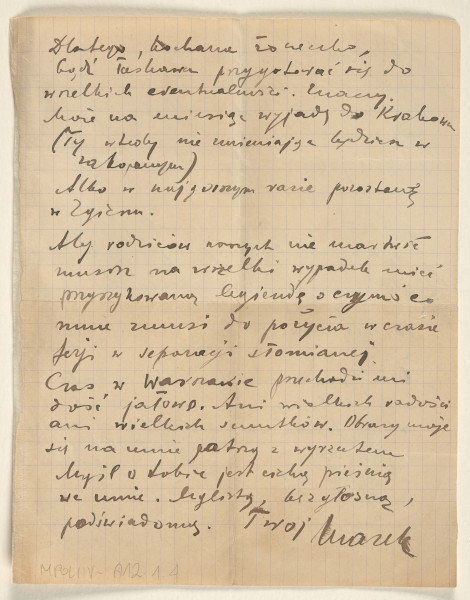 Dlatego, kochana żoneczko,
bądź łaskawa przygotować się do
wszelkich ewentualności.
Może na miesiąc wyjadę do Krakowa
(Ty wtedy nie zmieniając będziesz w
Zakopanym)
Albo w najgorszym razie pozostanę
w Żywcu.
Aby rodziców naszych nie martwić
musisz na wszelki wypadek mieć
przyszykowaną legiendę o czymś co
mnie zmusi do pożycia w czasie
feryj w separacji słomianej.
Czas w Warszawie przechodzi mi
dość jałowo. Ani wielkich radości
ani wielkich smutków. Obrazy moje
się na mnie patrzą z wyrzutem
Myśl o Tobie jest cichą pieśnią
we mnie. Mglistą, bezgłosną,
podświadomą. Twój Marek
MPOLIN-A12.1.4